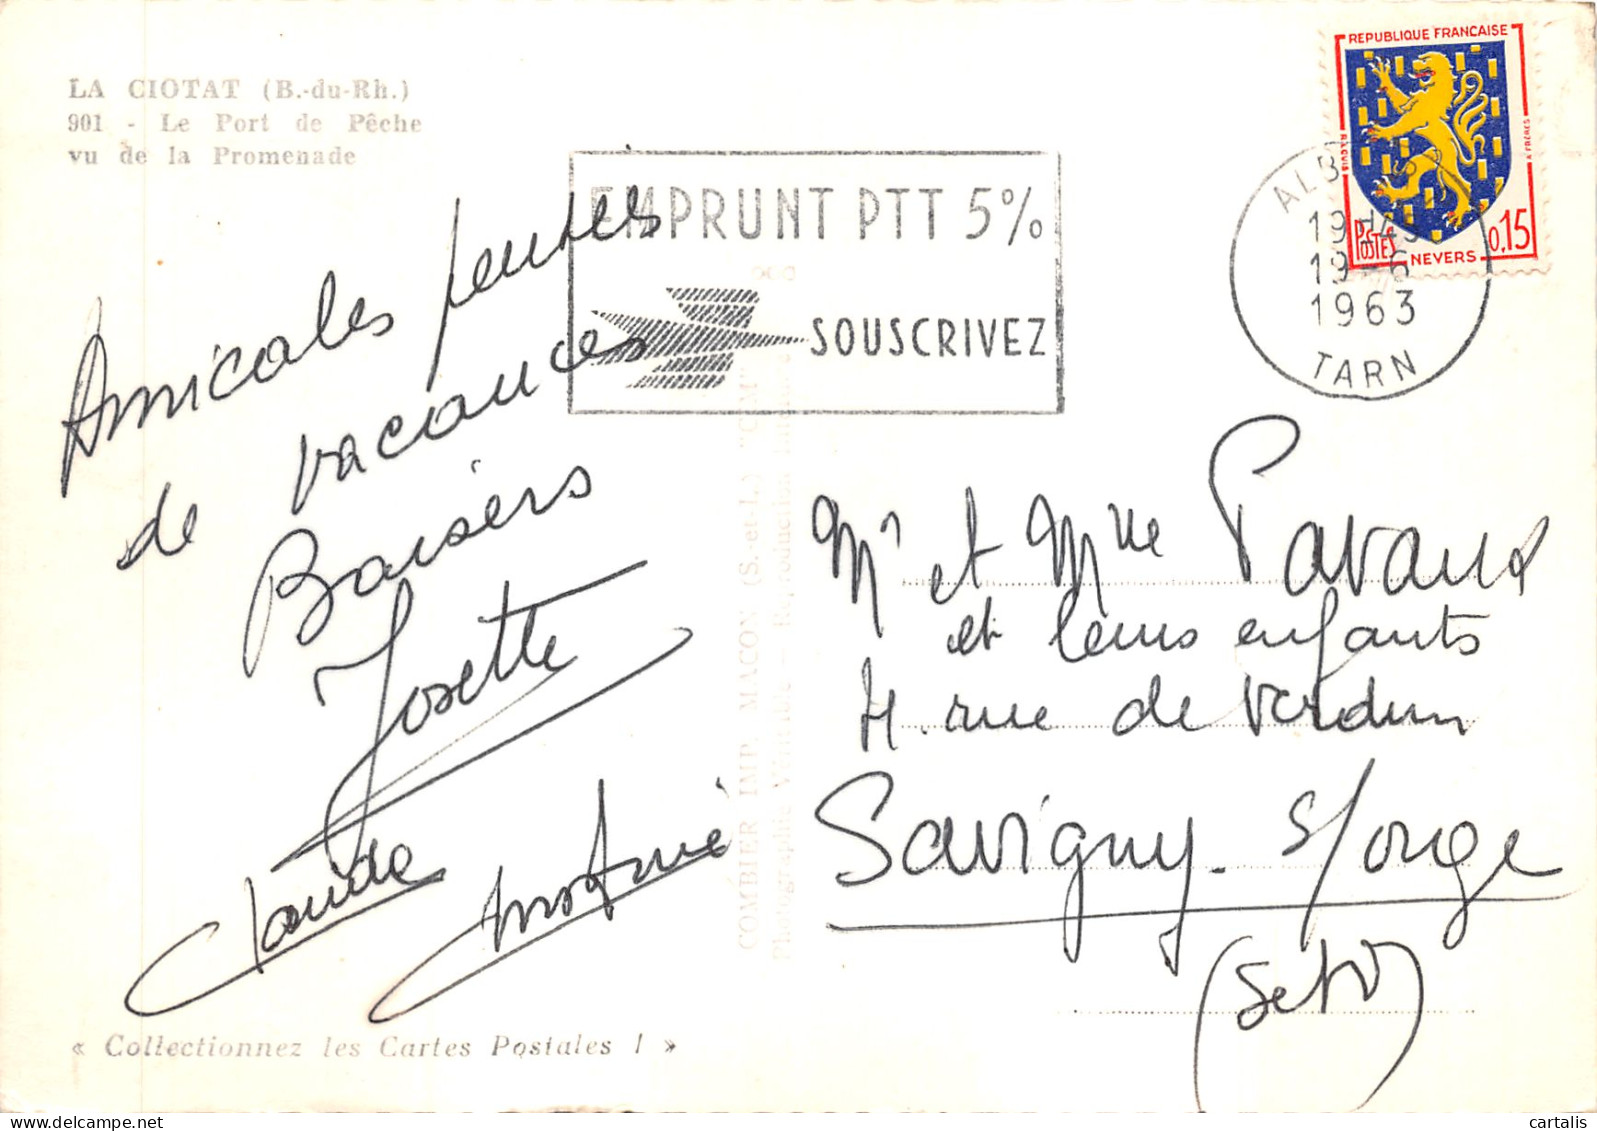 LA CIOTAT (B.-du-Rh.)
901 - Le Port de Pêche
vu de la Promenade
Amicales pensées
de vacances
Baisers
Josette
Claude
« Collectionnez les Cartes Postales ! »
COMBIER IMP. MACON (S.-et-L.) "CIM"
Photographie Véritable - Reproduction
EMPRUNT PTT 5%
SOUSCRIVEZ
REPUBLIQUE FRANÇAISE
POSTES
0,15
NEVERS
ALB
19H45
19-6
1963
TARN
Mr et Mme Pavaux
et leurs enfants
rue de Verdun
Savigny s/orge
(S et O)
cartalis